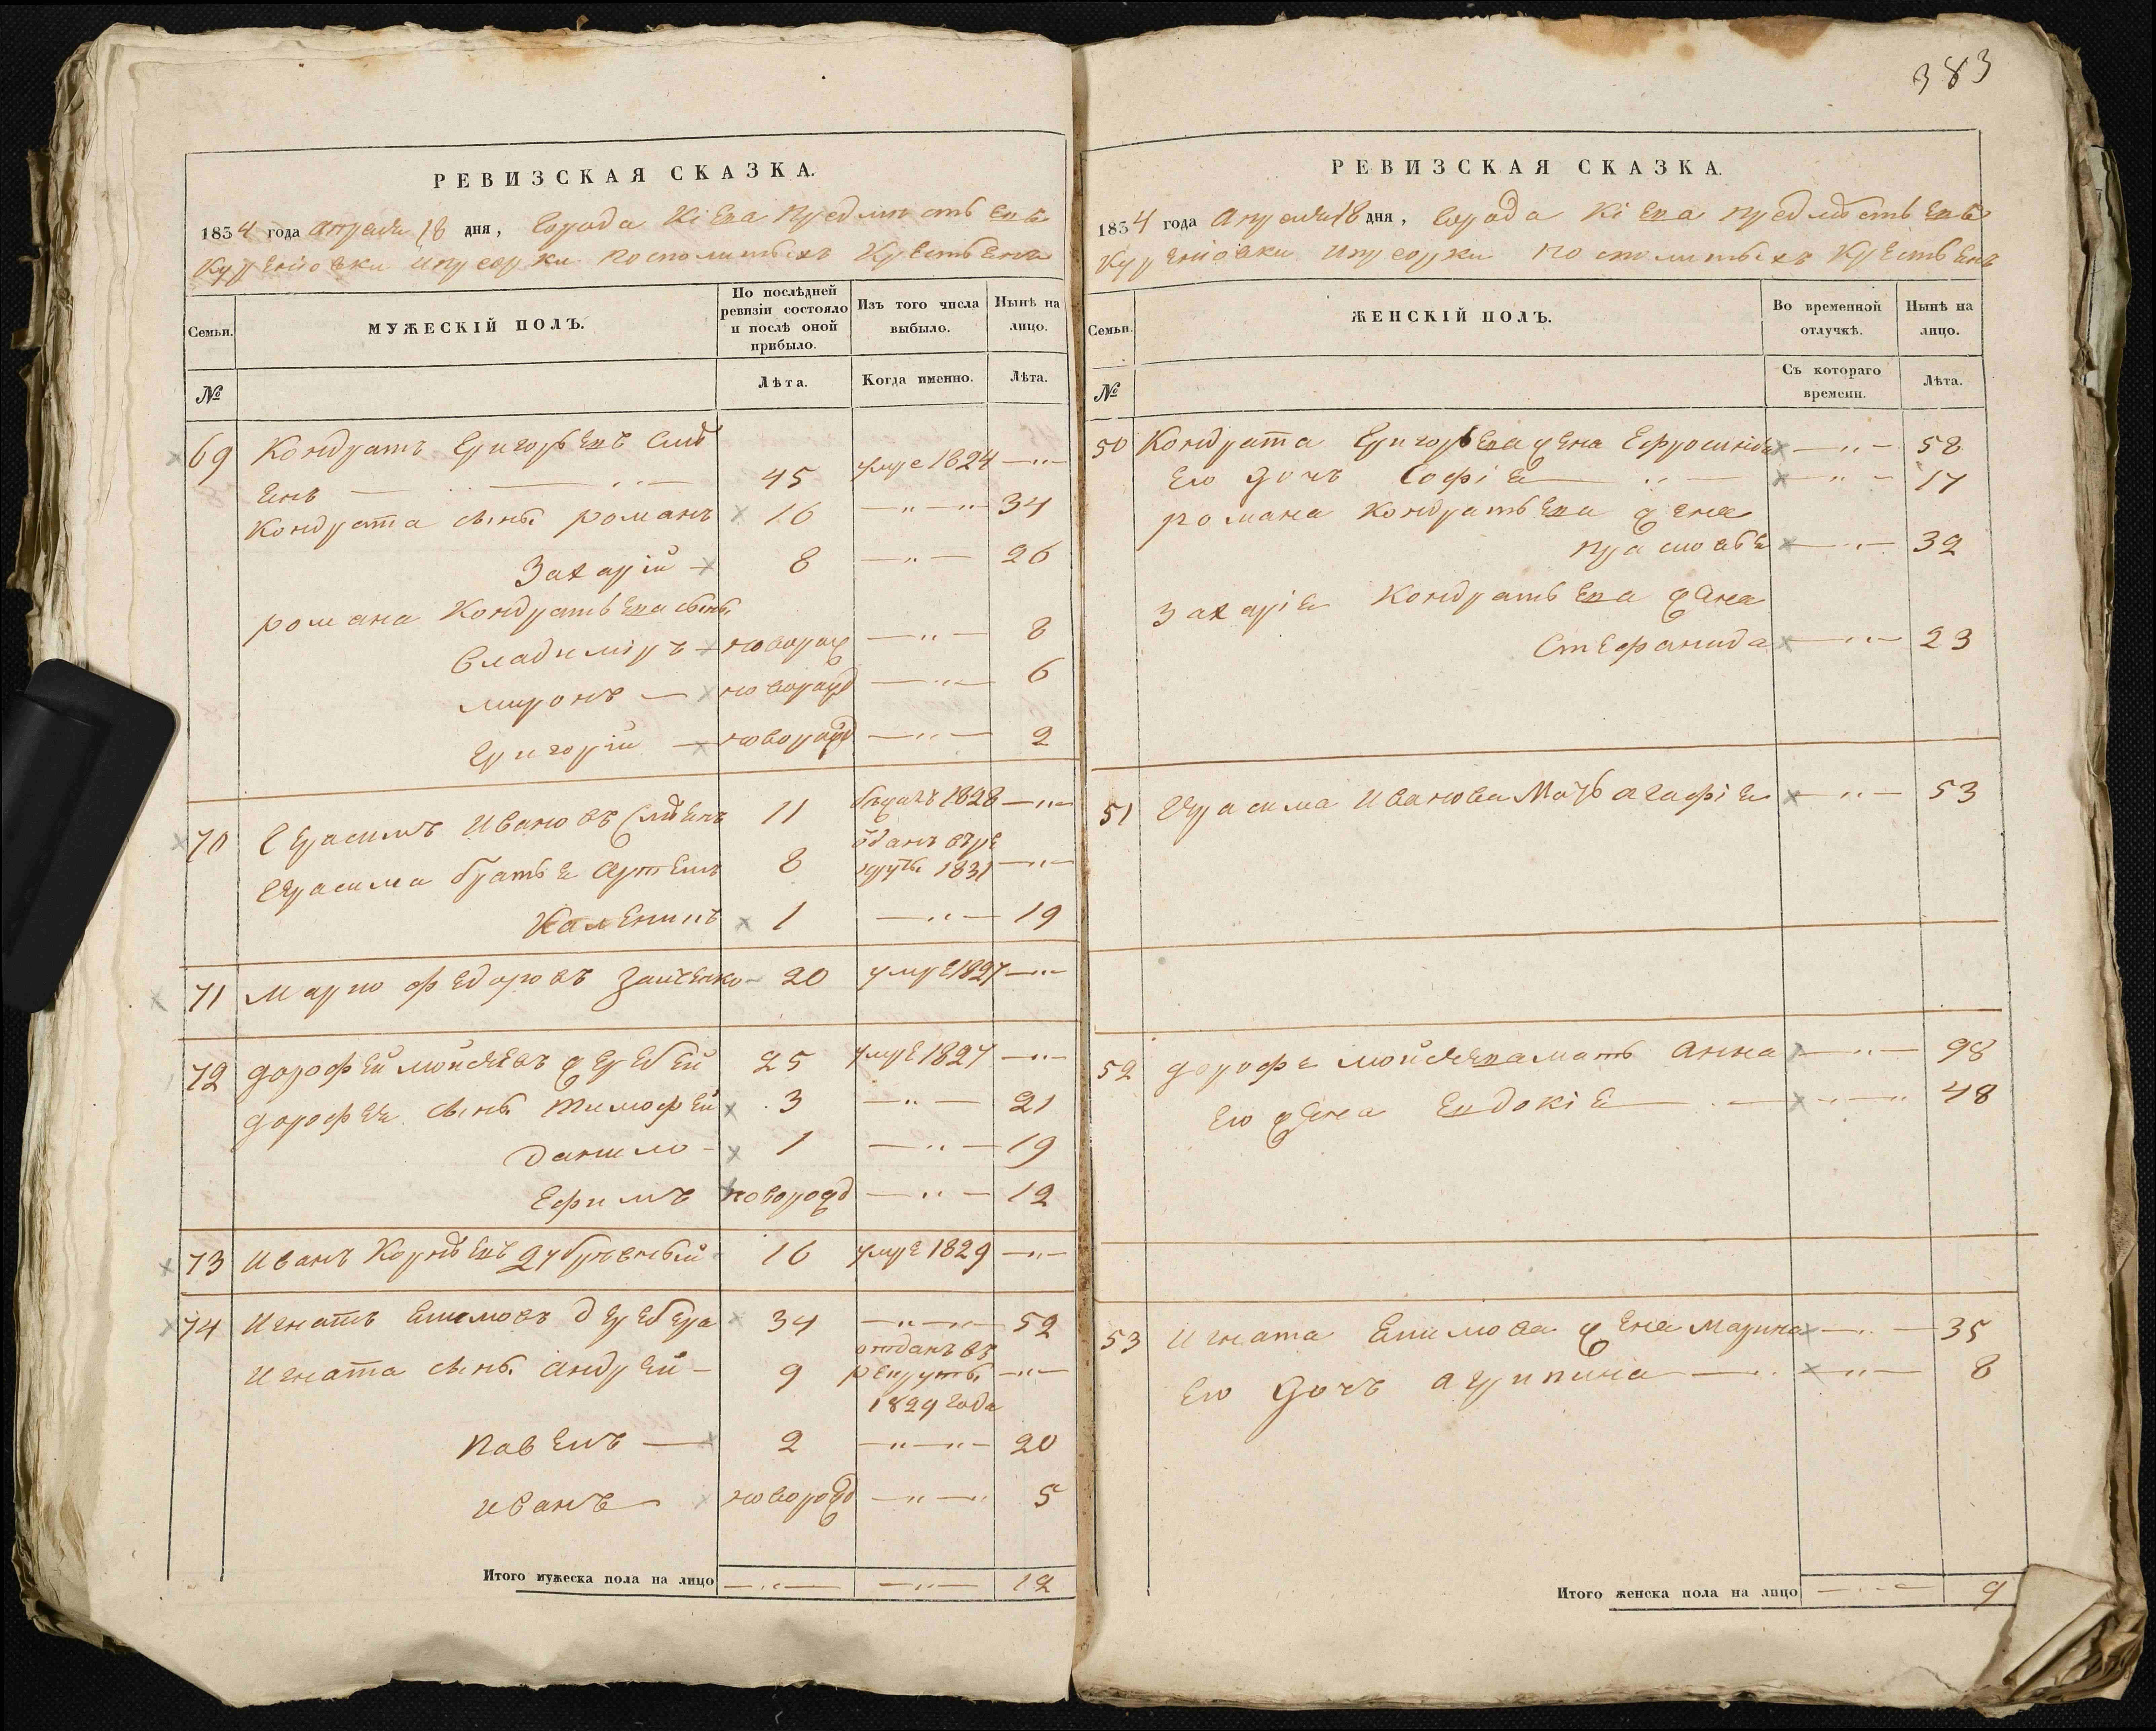 383
РЕВИЗСКАЯ СКАЗКА.
1834 года Апреля 18 дня, Города Кіева предмѣстьевъ
Куреніовки Иприорки посполитыхъ Крестьянъ
Семьи.
МУЖЕСКІЙ ПОЛЪ.
По послѣдней ревизіи состояло и послѣ оной прибыло.
Изъ того числа выбыло.
Нынѣ на лицо.
№
Лѣта.
Когда именно.
Лѣта.
69 Кондратъ Григорьевъ
45 умре 1824 — " —
Кондрата сыны романъ 16 — " — " 34
Захарій 8 — " — 26
романа Кондратьева сыны
Владиміръ новорож — " — 8
миронъ — новорожд — " — 6
Григорій — новорожд — " — 2
70 Герасимъ Ивановъ 11 бѣжалъ 1828 — " —
Герасима братья Артемъ 8 ѿданъ врекруты 1831 — " —
Каленикъ 1 — " — 19
71 Марко федоровъ Заиченко — 20 умре 1827 — " —
72 дорофей мойсѣевъ жеребей 25 умре 1827 — " —
дорофея сыны тимофей 3 — " — 21
данило — 1 — " — 19
Ефимъ новорожд — " — 12
73 Иванъ Корнѣевъ 16 умре 1829 — " —
74 Игнатъ Екимовъ деребера 34 — " — " — 52
Игната сыны андрей — 9 отданъ въ рекруты 1829 года — " —
павелъ — 2 — " — " — 20
иванъ новорожд — " — " 5
Итого мужеска пола на лицо — " — — " — 12
РЕВИЗСКАЯ СКАЗКА.
1834 года Апреля 18 дня, Города Кіева предмѣстьевъ
Куреніовки Иприорки посполитыхъ Крестьянъ
Семьи.
ЖЕНСКІЙ ПОЛЪ.
Во временной отлучкѣ.
Нынѣ на лицо.
№
Съ котораго времени.
Лѣта.
50 Кондрата Григорьева жена Ефросинія — " — 58
Его дочь Софія — " — — " — 17
романа Кондратьева жена
прасковья — " — 32
Захарія Кондратьева жена
Стефанида — " — 23
51 Герасима Иванова Мать агафія — " — 53
52 дорофея мойсѣева мать Анна — " — 98
Его жена Евдокія — " — " 48
53 Игната Екимова жена марина — " — 35
Его дочь агрипина — " — — " — 8
Итого женска пола на лицо — " — 9